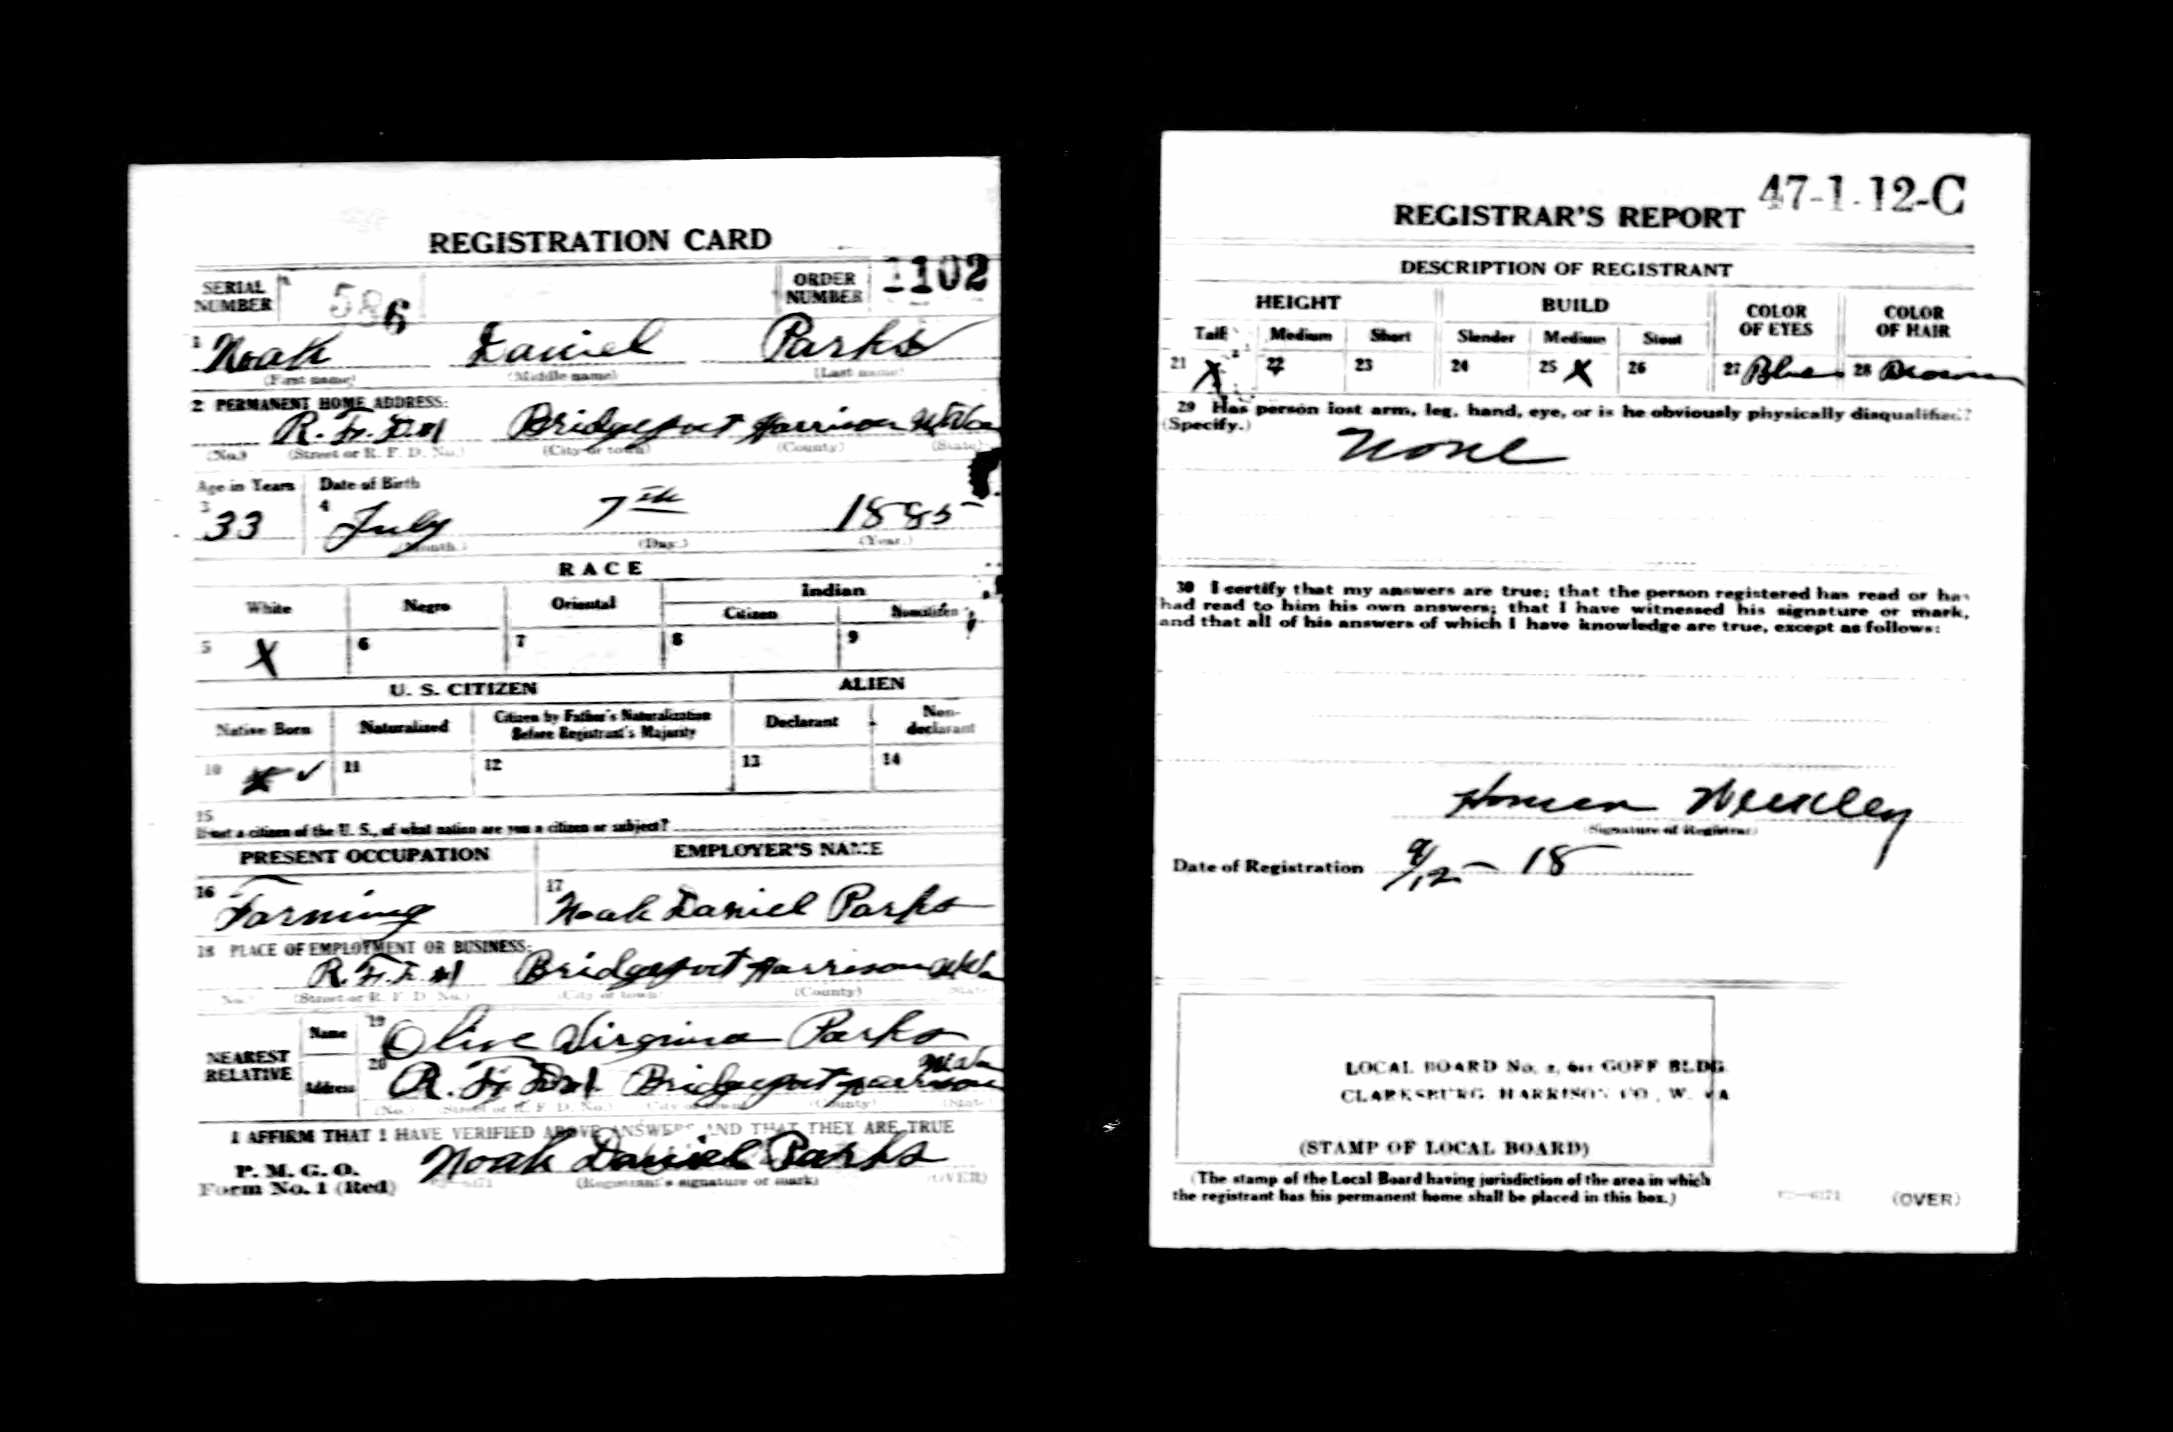 REGISTRATION CARD
SERIAL NUMBER 586 ORDER NUMBER 1102
1 Noah Daniel Parks
(First name) (Middle name) (Last name)
2 PERMANENT HOME ADDRESS:
R.F.D. #1 Bridgeport Harrison W.Va
(No.) (Street or R. F. D. No.) (City or town) (County) (State)
Age in Years Date of Birth
3 33 4 July 7th 1885
(Month.) (Day.) (Year.)
RACE
White Negro Oriental Indian
Citizen Noncitizen
5 X 6 7 8 9
U. S. CITIZEN ALIEN
Native Born Naturalized Citizen by Father's Naturalization Before Registrant's Majority Declarant Non-declarant
10 X ✓ 11 12 13 14
15
If not a citizen of the U. S., of what nation are you a citizen or subject?
PRESENT OCCUPATION EMPLOYER'S NAME
16 Farming 17 Noah Daniel Parks
18 PLACE OF EMPLOYMENT OR BUSINESS:
R.F.D. #1 Bridgeport Harrison W.Va
(No.) (Street or R. F. D. No.) (City or town) (County) (State)
NEAREST RELATIVE
Name 19 Olive Virginia Parks
Address 20 R.F.D. #1 Bridgeport Harrison W.Va
(No.) (Street or R. F. D. No.) (City or town) (County) (State)
I AFFIRM THAT I HAVE VERIFIED ABOVE ANSWERS AND THAT THEY ARE TRUE
P. M. G. O.
Form No. 1 (Red)
Noah Daniel Parks
(Registrant's signature or mark) (OVER)
47-1-12-C
REGISTRAR'S REPORT
DESCRIPTION OF REGISTRANT
HEIGHT BUILD COLOR OF EYES COLOR OF HAIR
Tall Medium Short Slender Medium Stout
21 X 22 23 24 25 X 26 27 Blue 28 Brown
29 Has person lost arm, leg, hand, eye, or is he obviously physically disqualified?
(Specify.)
None
30 I certify that my answers are true; that the person registered has read or has
had read to him his own answers; that I have witnessed his signature or mark,
and that all of his answers of which I have knowledge are true, except as follows:
(Signature of Registrar)
Date of Registration 9/12-18
LOCAL BOARD No. 2, 611 GOFF BLDG
CLARKSBURG HARRISON CO., W. VA
(STAMP OF LOCAL BOARD)
(The stamp of the Local Board having jurisdiction of the area in which
the registrant has his permanent home shall be placed in this box.)
(OVER)